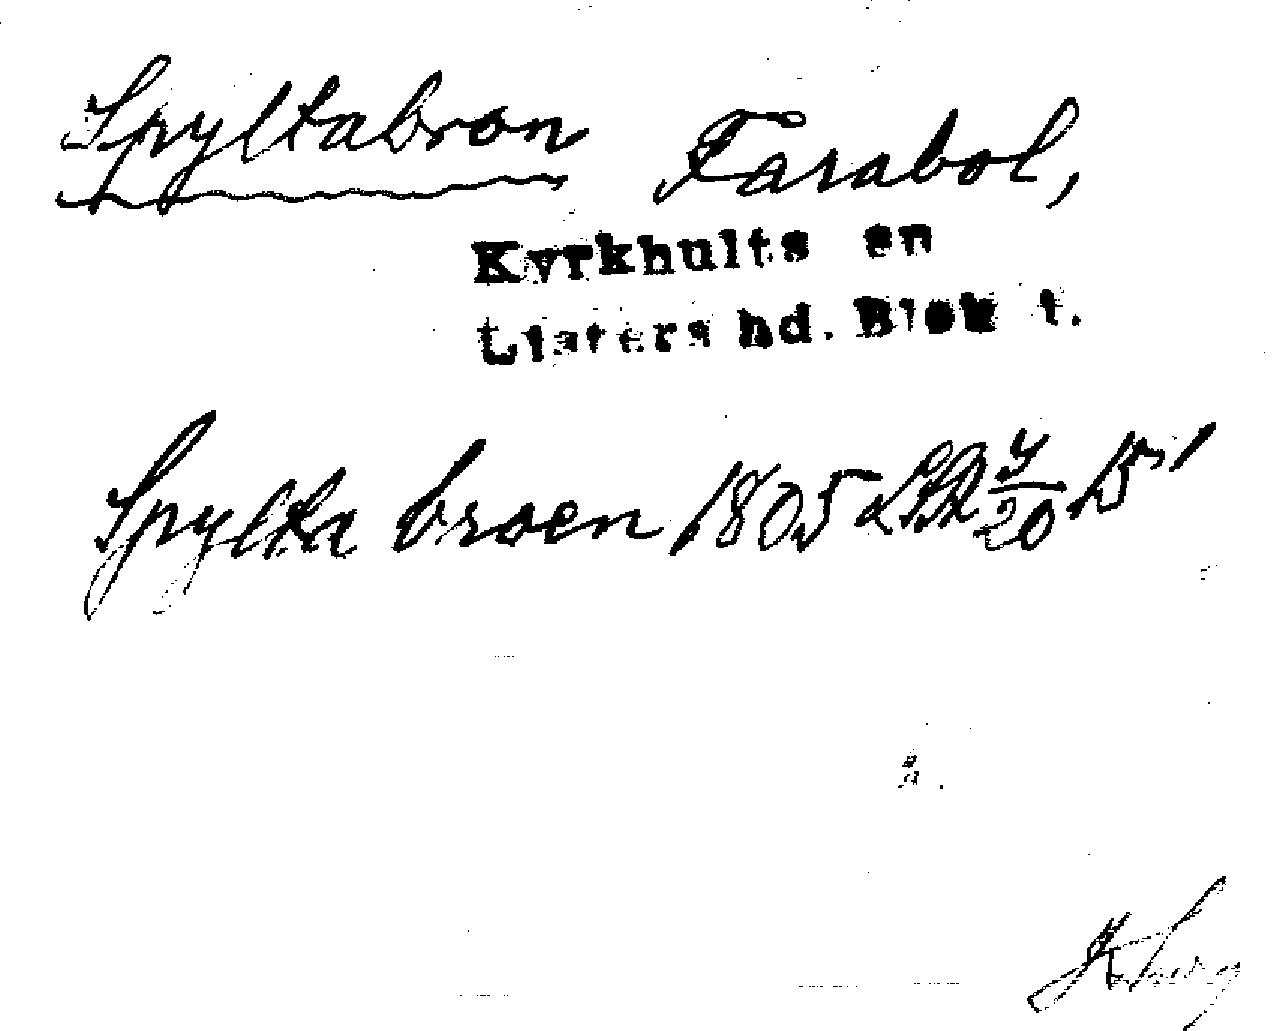 Spyltabron Farabol,
Kyrkhults sn
Listers hd. Blek l.
Spylta broen 1805 LSA 4/20 15